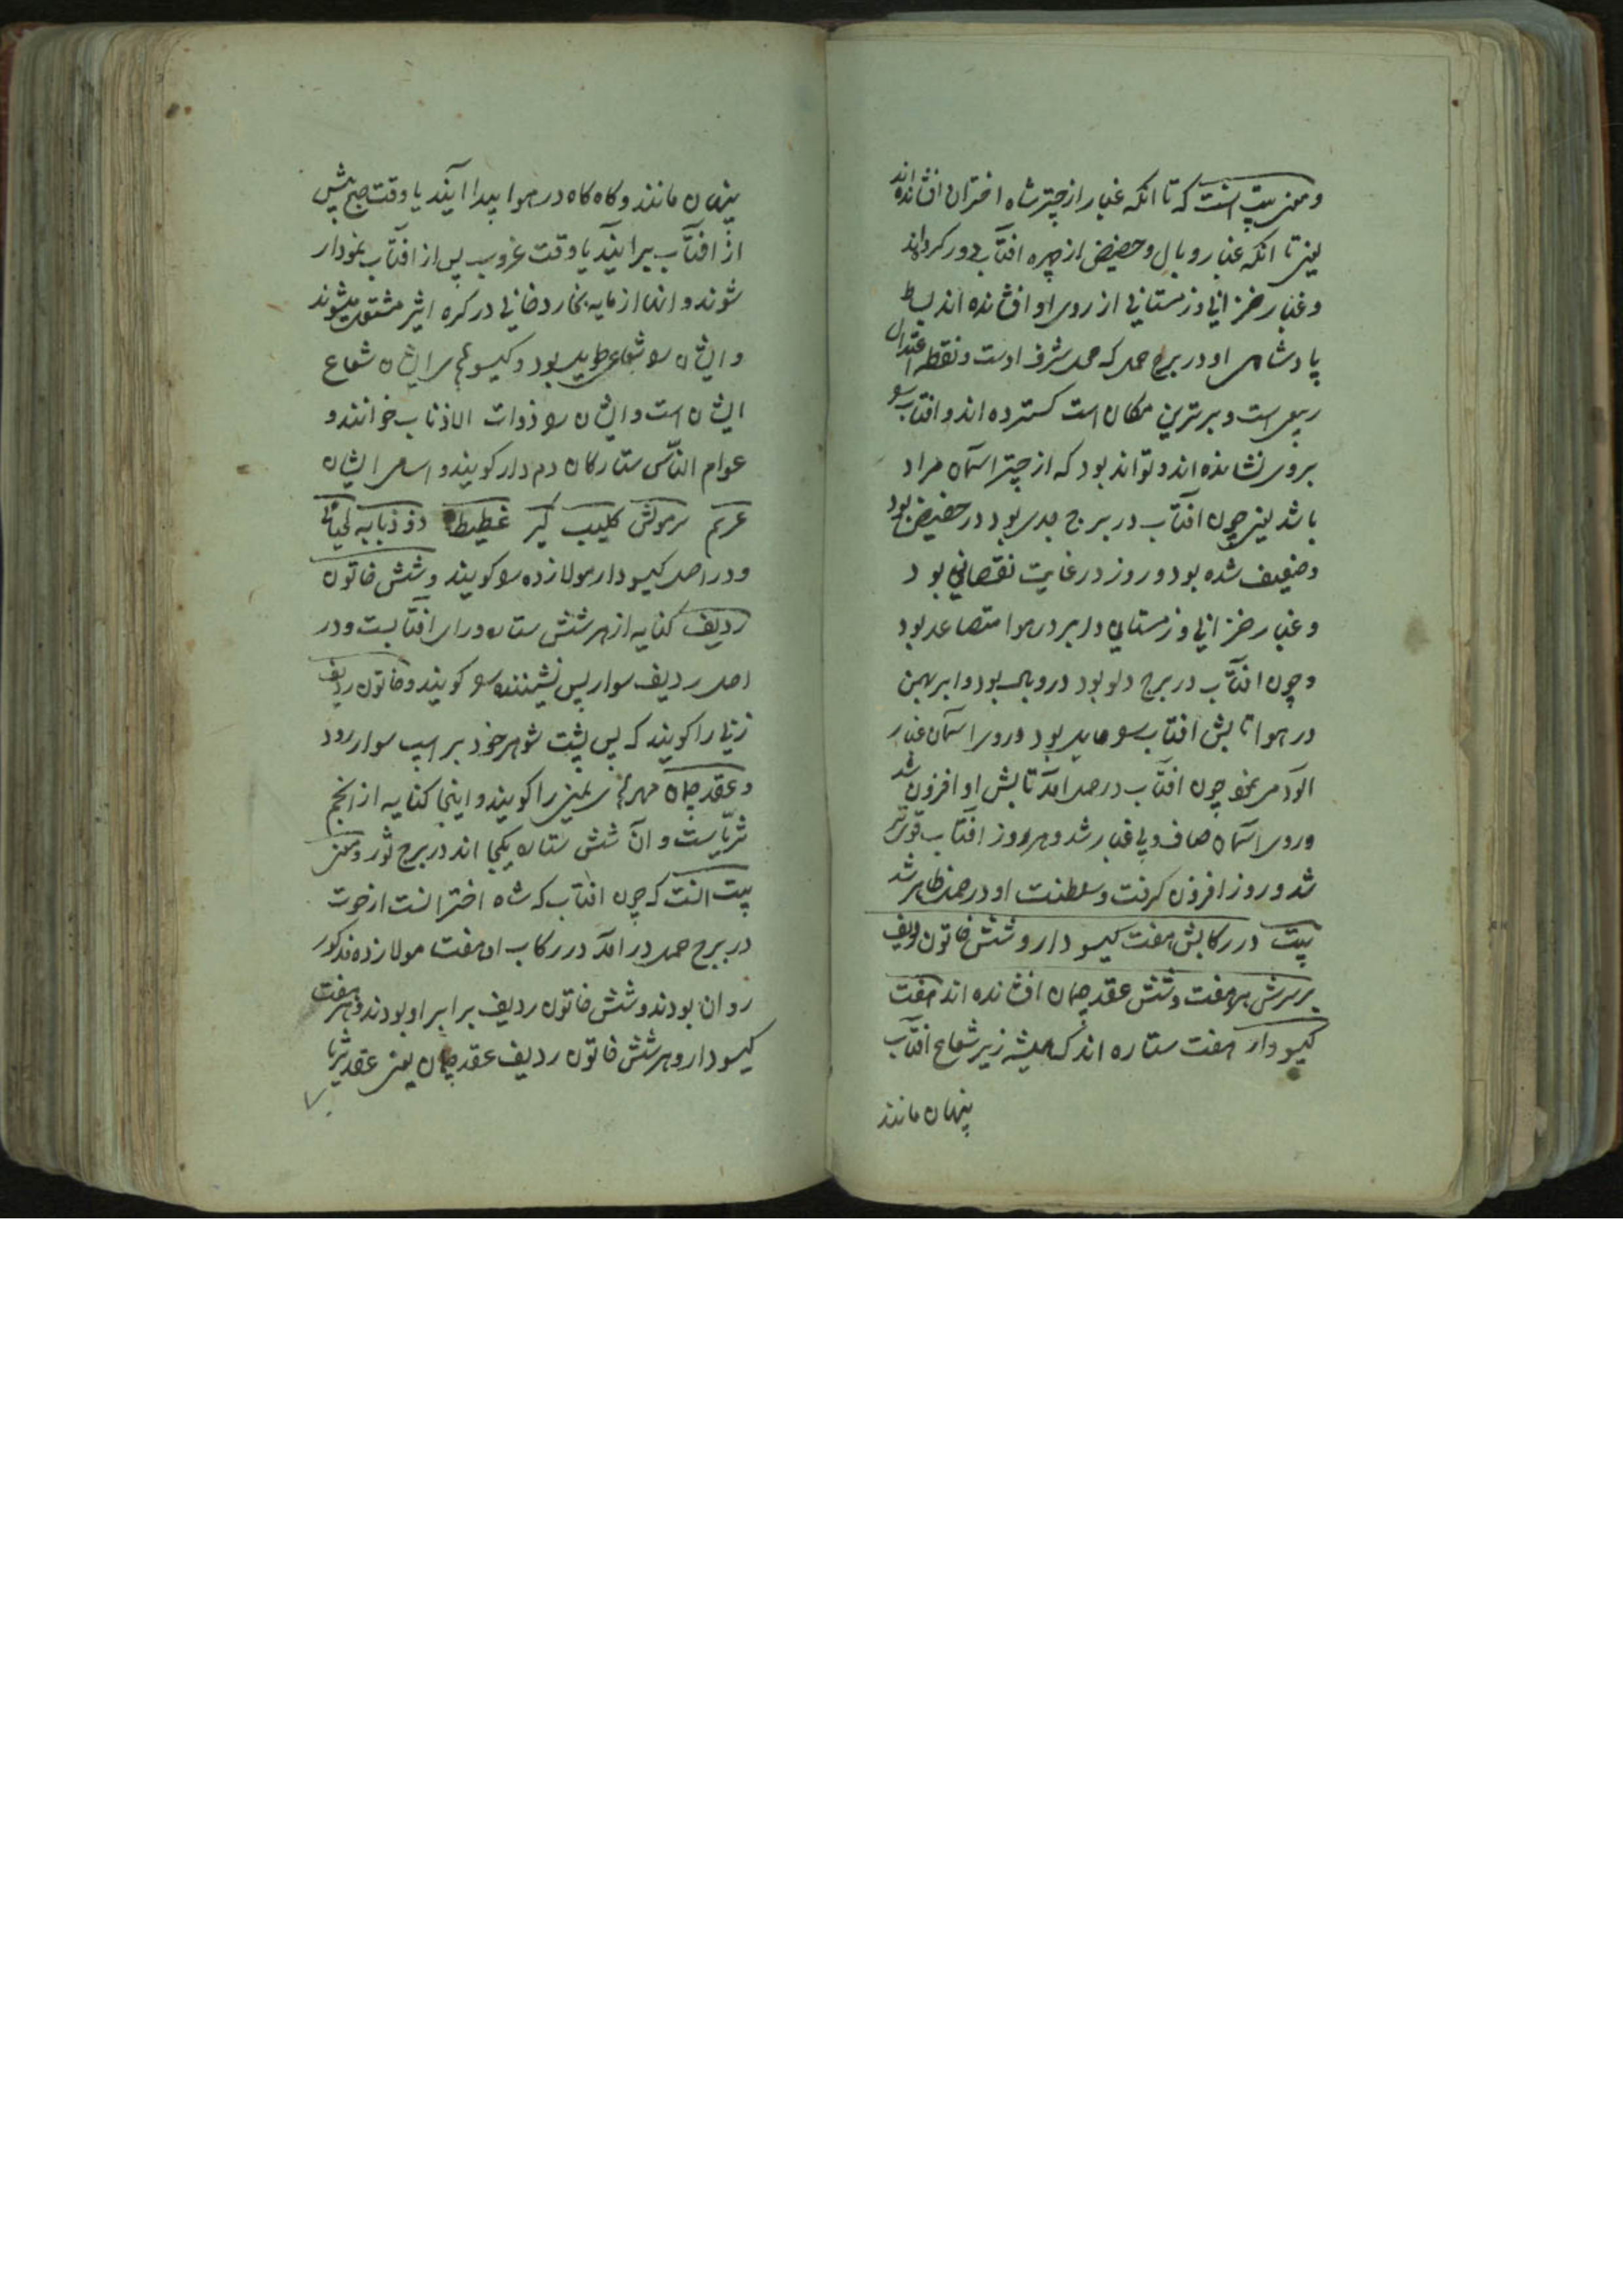 و معنی بیت آنست که تا انکه غبار از چتر شاه اختران افشانده اند
یعنی تا انکه غبار وبال و حضیض از چهره افتاب دور کرده اند
و غبار خزانی و زمستانی از روی او افشانده اند بساط
پادشاهی او در برج حمل که محل شرف اوست و نقطه اعتدال
ربیعی است و برترین مکان است کسترده اند و افتاب را
بروی نشانده اند و تواند بود که از چتر اسمان مراد
باشد یعنی چون افتاب در برج جدی بود در حضیض بود
و ضعیف شده بود و روز در غایت نقصانی بود
و غبار خزانی و زمستانی و ابر در هوا متصاعد بود
و چون افتاب در برج دلو بود در وبال بود و ابر بهمن
در هوا تابش افتاب را حایل بود و روی اسمان غبار
الود می نمود چون افتاب در حمل امد تابش او افزون شد
و روی اسمان صاف و بی غبار شد و هر روز افتاب قوی تر
شد و روز افزون کرفت و سلطنت او در حمل ظاهر شد
بیت در رکابش هفت کیسو دار و شش خاتون ردیف
بر سرش هر هفت و شش عقد جمان افشانده اند هفت
کیسو دار هفت ستاره اند که همیشه زیر شعاع افتاب
پنهان مانند
پنهان مانند و کاه کاه در هوا پیدا ایند یا وقت صبح پیش
از افتاب بر ایند یا وقت غروب پس از افتاب نمودار
شوند و انها از مایه بخار دخانی در کره اثیر مشتعل میشوند
و ایشان را شعاعی طویل بود و کیسوهای ایشان شعاع
ایشان است و ایشان را ذوات الاذناب خوانند و
عوام الناس ستارکان دم دار کویند و اسامی ایشان
عریم سرموش کلیب کیر غطیط ذوذبابه لحیانی
و در اصل کیسو دار مولازاده را کویند و شش خاتون
ردیف کنایه از هر شش ستاره ورای افتابست و در
اصل ردیف سوار پس نشیننده را کویند و خاتون ردیف
زنی را کویند که پس پشت شوهر خود بر اسپ سوار رود
و عقد جمان مهرهای سیمین را کویند و اینجا کنایه از انجم
ثریاست و آن شش ستاره یکجا اند در برج ثور و معنی
بیت انست که چون افتاب که شاه اخترانست از حوت
در برج حمل در امد در رکاب او هفت مولازاده مذکور
روان بودند و شش خاتون ردیف برابر او بودند و هر هفت
کیسو دار و هر شش خاتون ردیف عقد جمان یعنی عقد ثریا